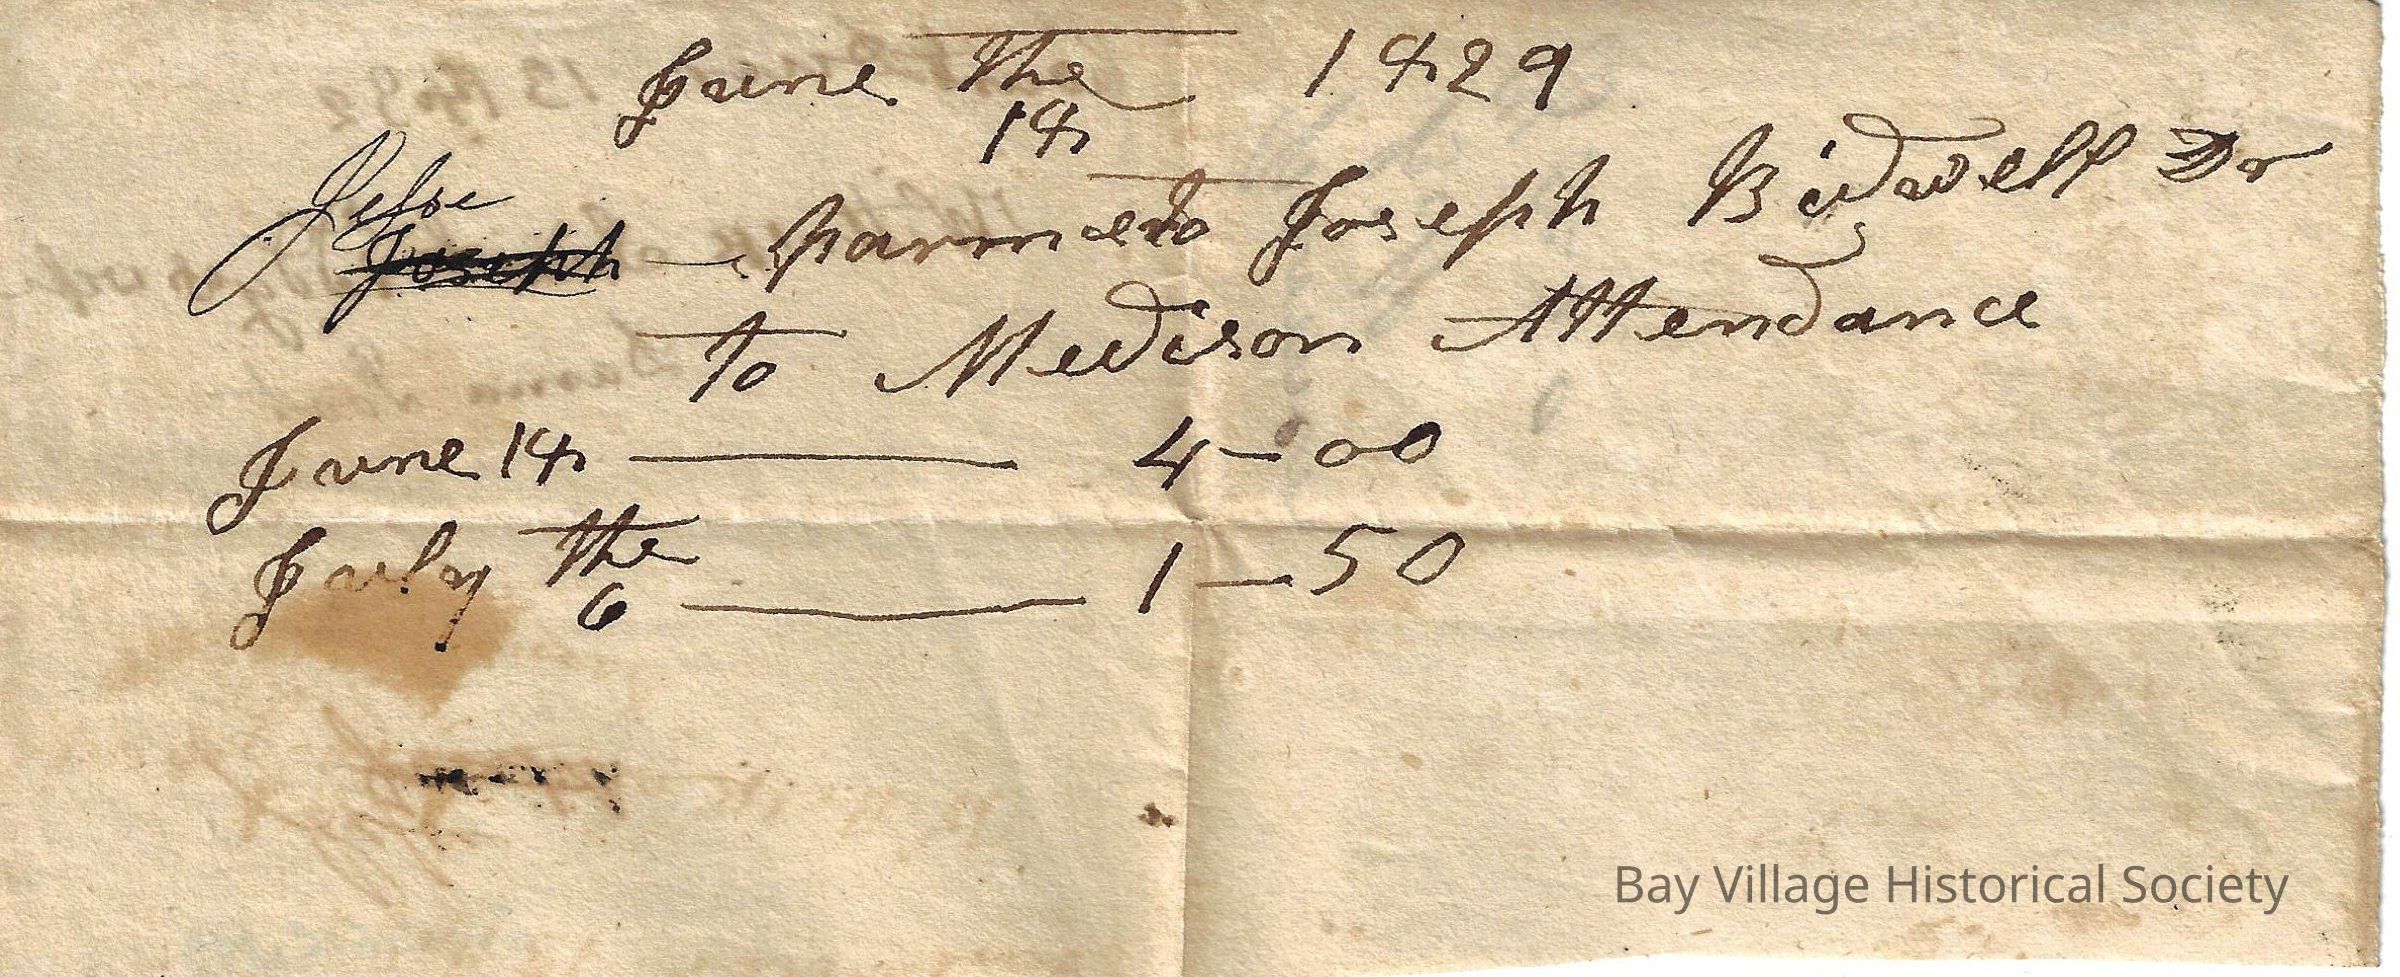 June the 1829
18
Jesse
Joseph — to Joseph Bidwell Dr
To Medison Attendance
June 18 — 4-00
July the
6 — 1-50
Bay Village Historical Society